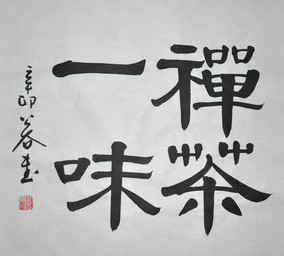 禪茶
一味
辛卯